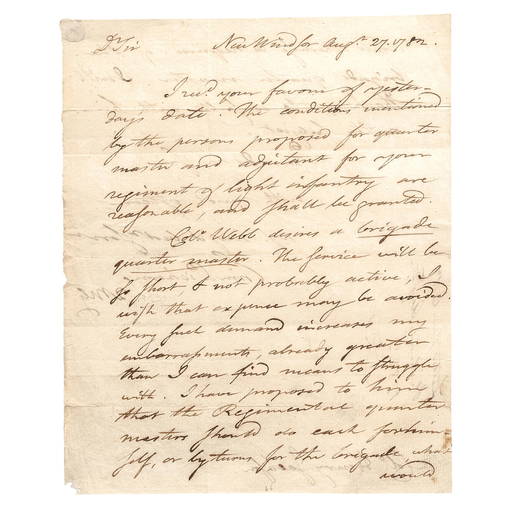 Dr Sir New Windsor Augt. 27. 1782.
I recd. your favour of yester-
days date. The conditions mentioned
by the persons proposed for quarter
master and adjutant for your
regiment of light infantry are
reasonable, and shall be granted.
Colo. Webb desires a brigade
quarter master. The service will be
so short & not probably active, I
wish that expence may be avoided.
Every such demand increases my
embarrassments, already greater
than I can find means to struggle
with. I have proposed to him
that the Regimental quarter
masters should do each for him-
self, or by turns for the brigade, what
would